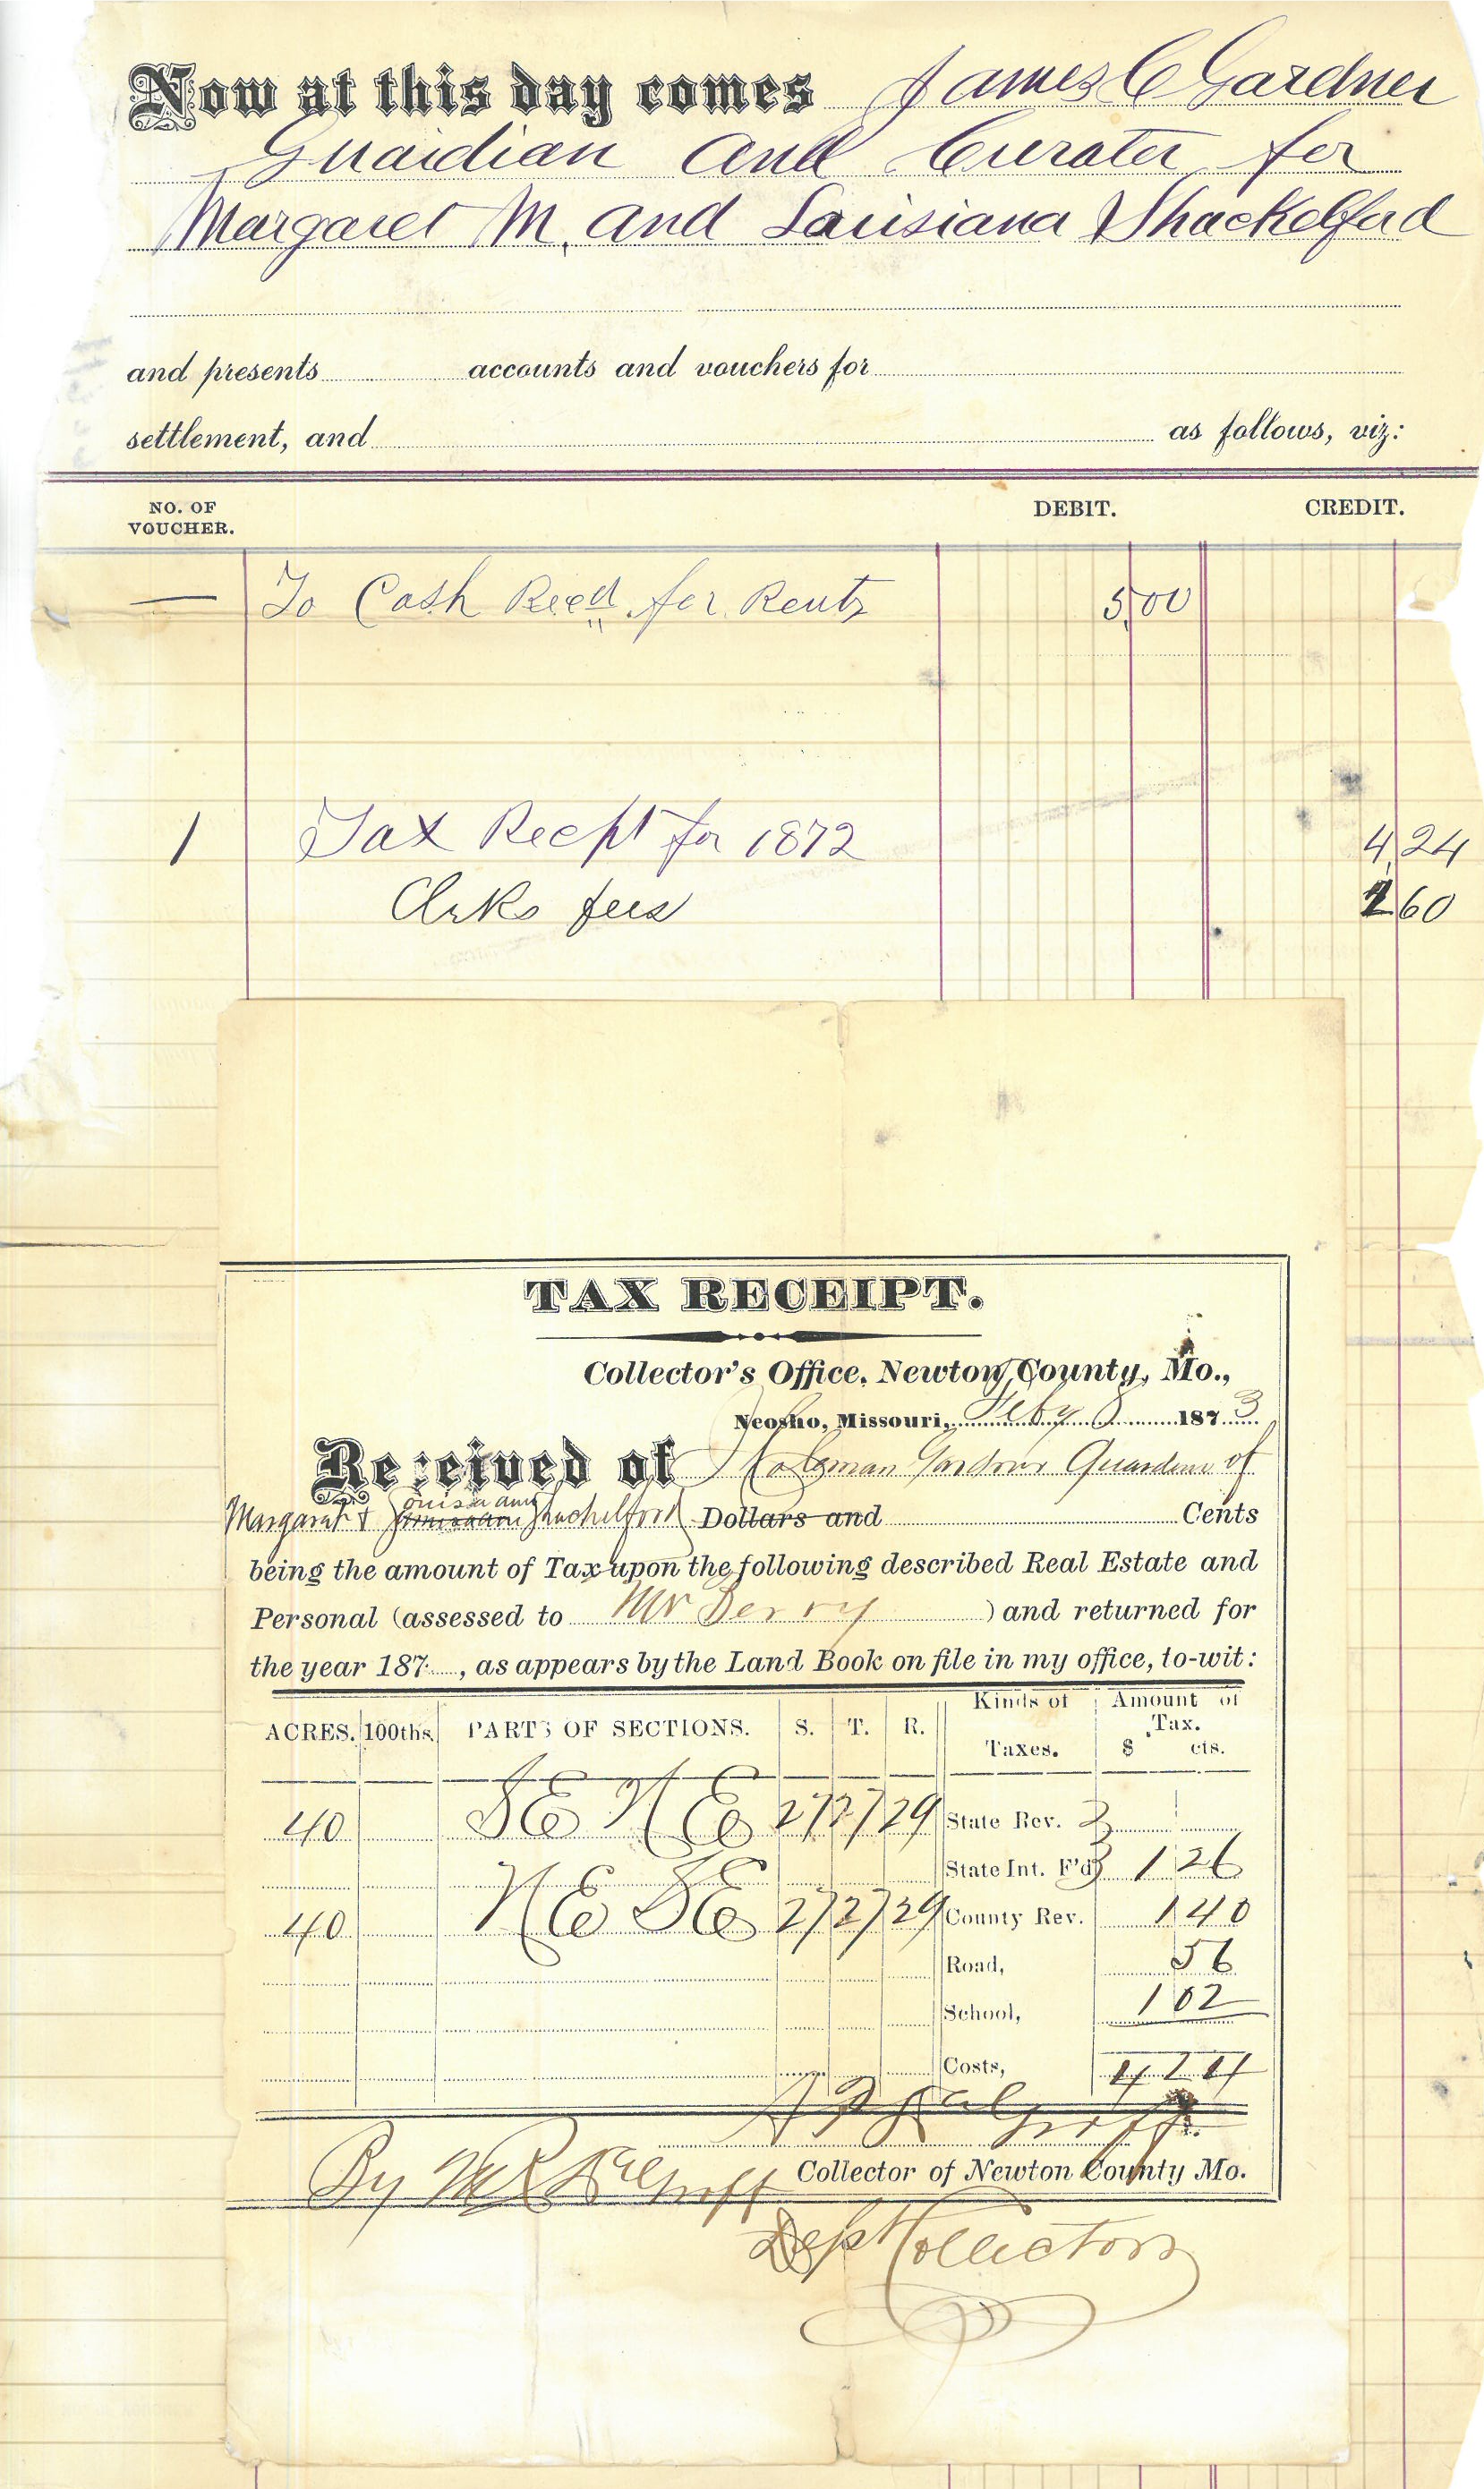 Now at this day comes James C Gardner
Guardian and Curator for
Margaret M. and Louisiana Shackelford
and presents accounts and vouchers for
settlement, and as follows, viz:
NO. OF VOUCHER. DEBIT. CREDIT.
— To Cash Recd for Rents 5,00
1 Tax Recpt for 1872 4,24
Clrks fees 1 60
TAX RECEIPT.
Collector's Office, Newton County, Mo.,
Neosho, Missouri, Feby 187 3
Received of J Coleman Gardner Guardian of
Margaret & Louisiana Shackelford Dollars and Cents
being the amount of Tax upon the following described Real Estate and
Personal (assessed to Mr Berry ) and returned for
the year 187 , as appears by the Land Book on file in my office, to-wit:
ACRES. 100ths. PARTS OF SECTIONS. S. T. R. Kinds of Taxes. Amount of Tax. $ cts.
40 SE NE 27 27 29 State Rev.
State Int. F'd 1 26
40 NE SE 27 27 29 County Rev. 1 40
Road, 56
School, 1 02
Costs, 4 24
Collector of Newton County Mo.
By
Dept Collector